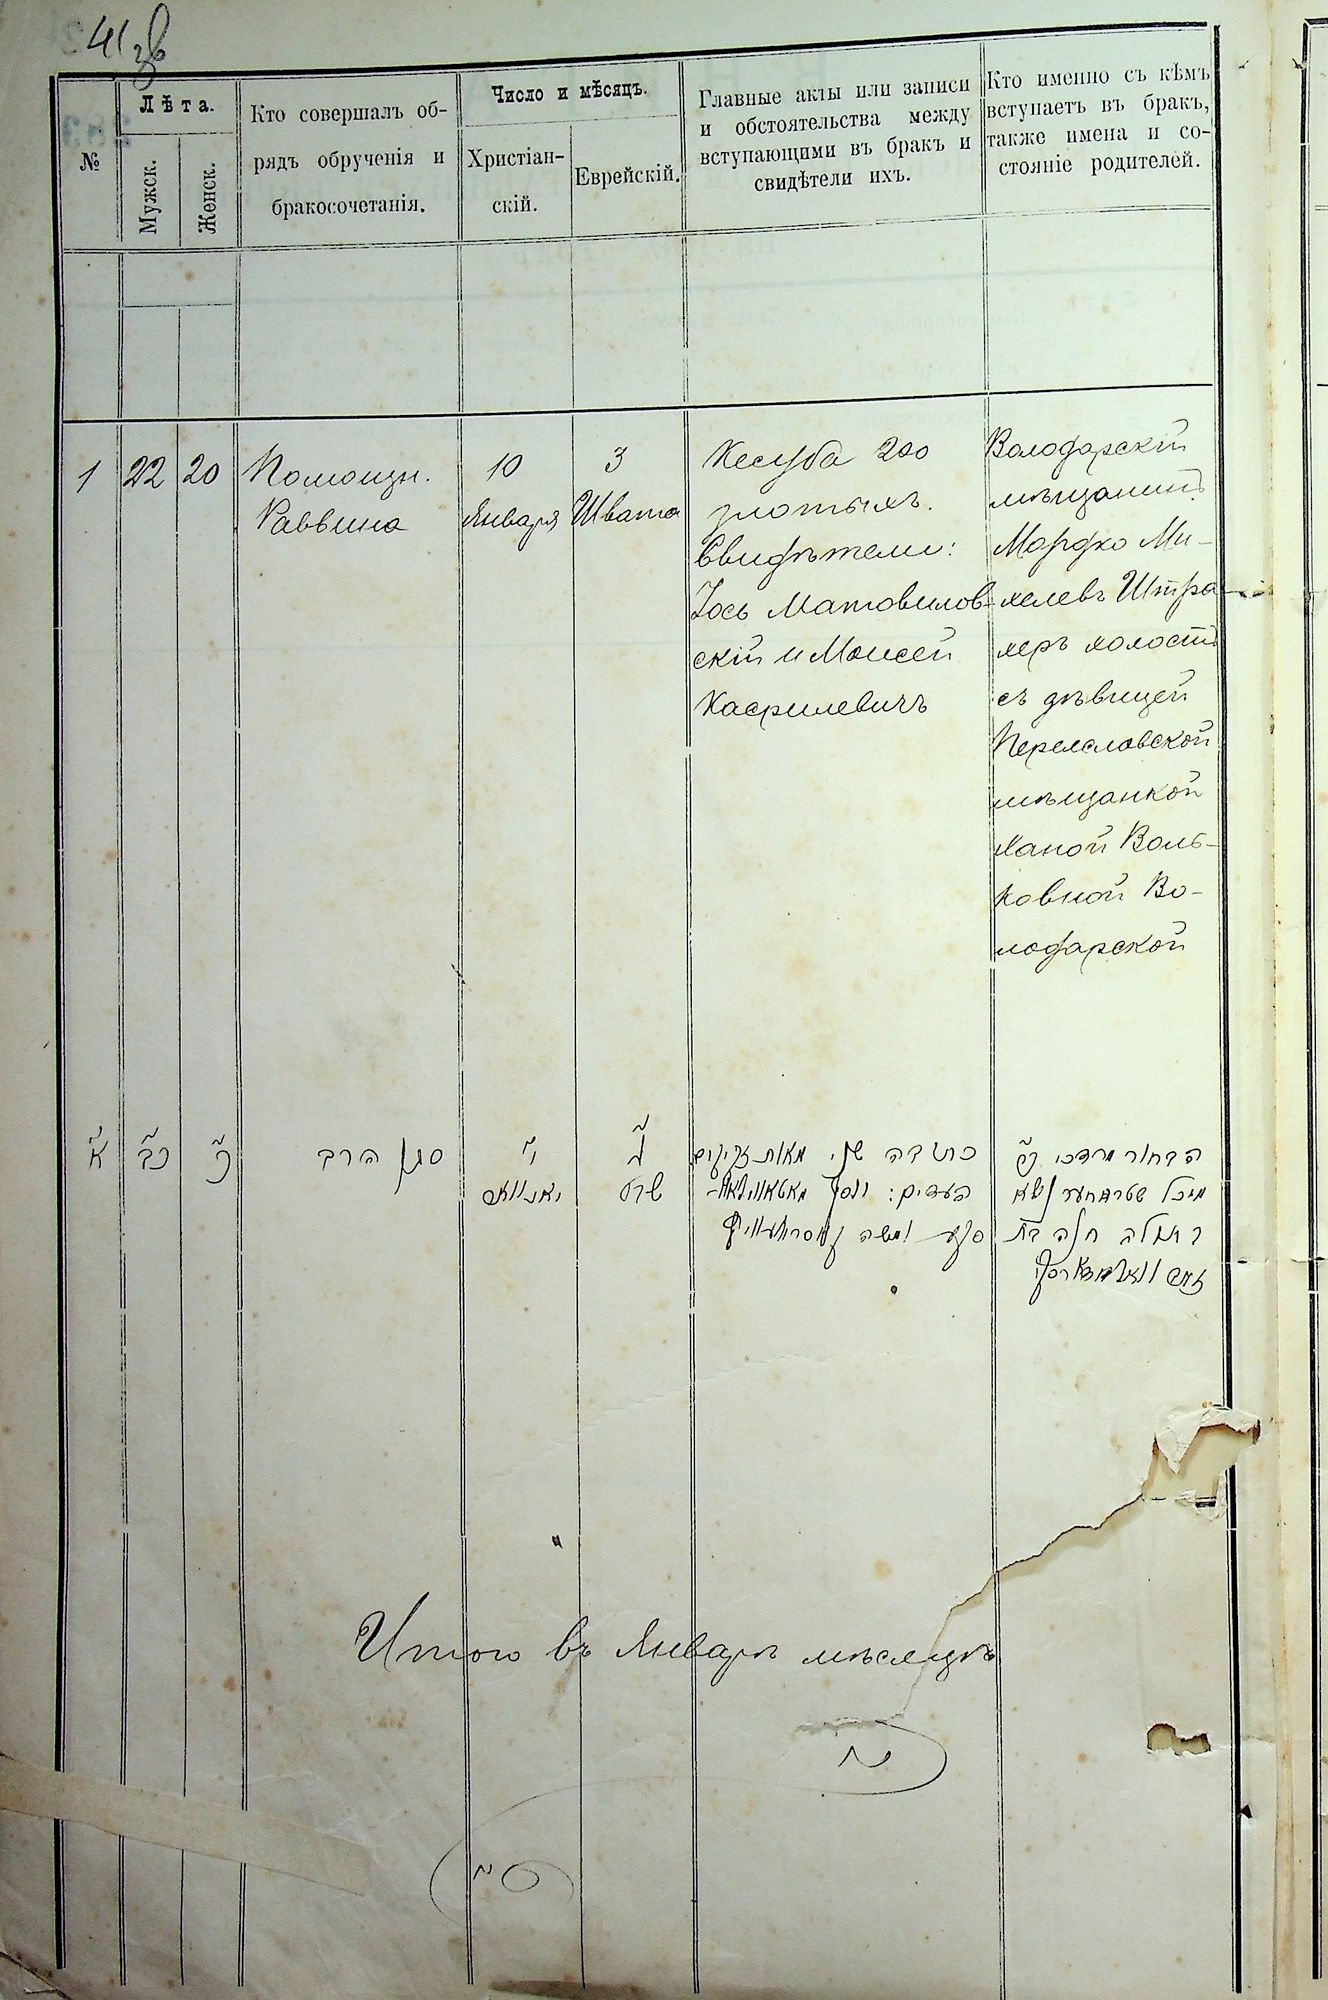 41 зв
№
Лѣта.
Мужск.
Женск.
Кто совершалъ об-
рядъ обрученія и
бракосочетанія.
Число и мѣсяцъ.
Христіан-
скій.
Еврейскій.
Главные акты или записи
и обстоятельства между
вступающими въ бракъ и
свидѣтели ихъ.
Кто именно съ кѣмъ
вступаетъ въ бракъ,
также имена и со-
стояніе родителей.
1
22
20
Помощн.
Раввина
10
Января
3
Швата
Кесуба 200
злотыхъ.
Свидѣтели:
Іось Матовилов-
скій и Моисей
Касрилевичъ
Володарскій
мѣщанинъ
Мордко Ми-
хелевъ Штра-
херъ холостъ
съ дѣвицей
Переяславской
мѣщанкой
Ханой Воль-
ковной Во-
лодарской
א
כב
כ
סגן הרב
י
יאנוואר
ג
שבט
כתובה שני מאות זקוקים
העדים: יוסף
ומשה
הבחור מרדכי
מיכל שטראחער נשא
בתולה חנה בת
זאב וואלאדארסקי
Итого въ Январѣ мѣсяцѣ